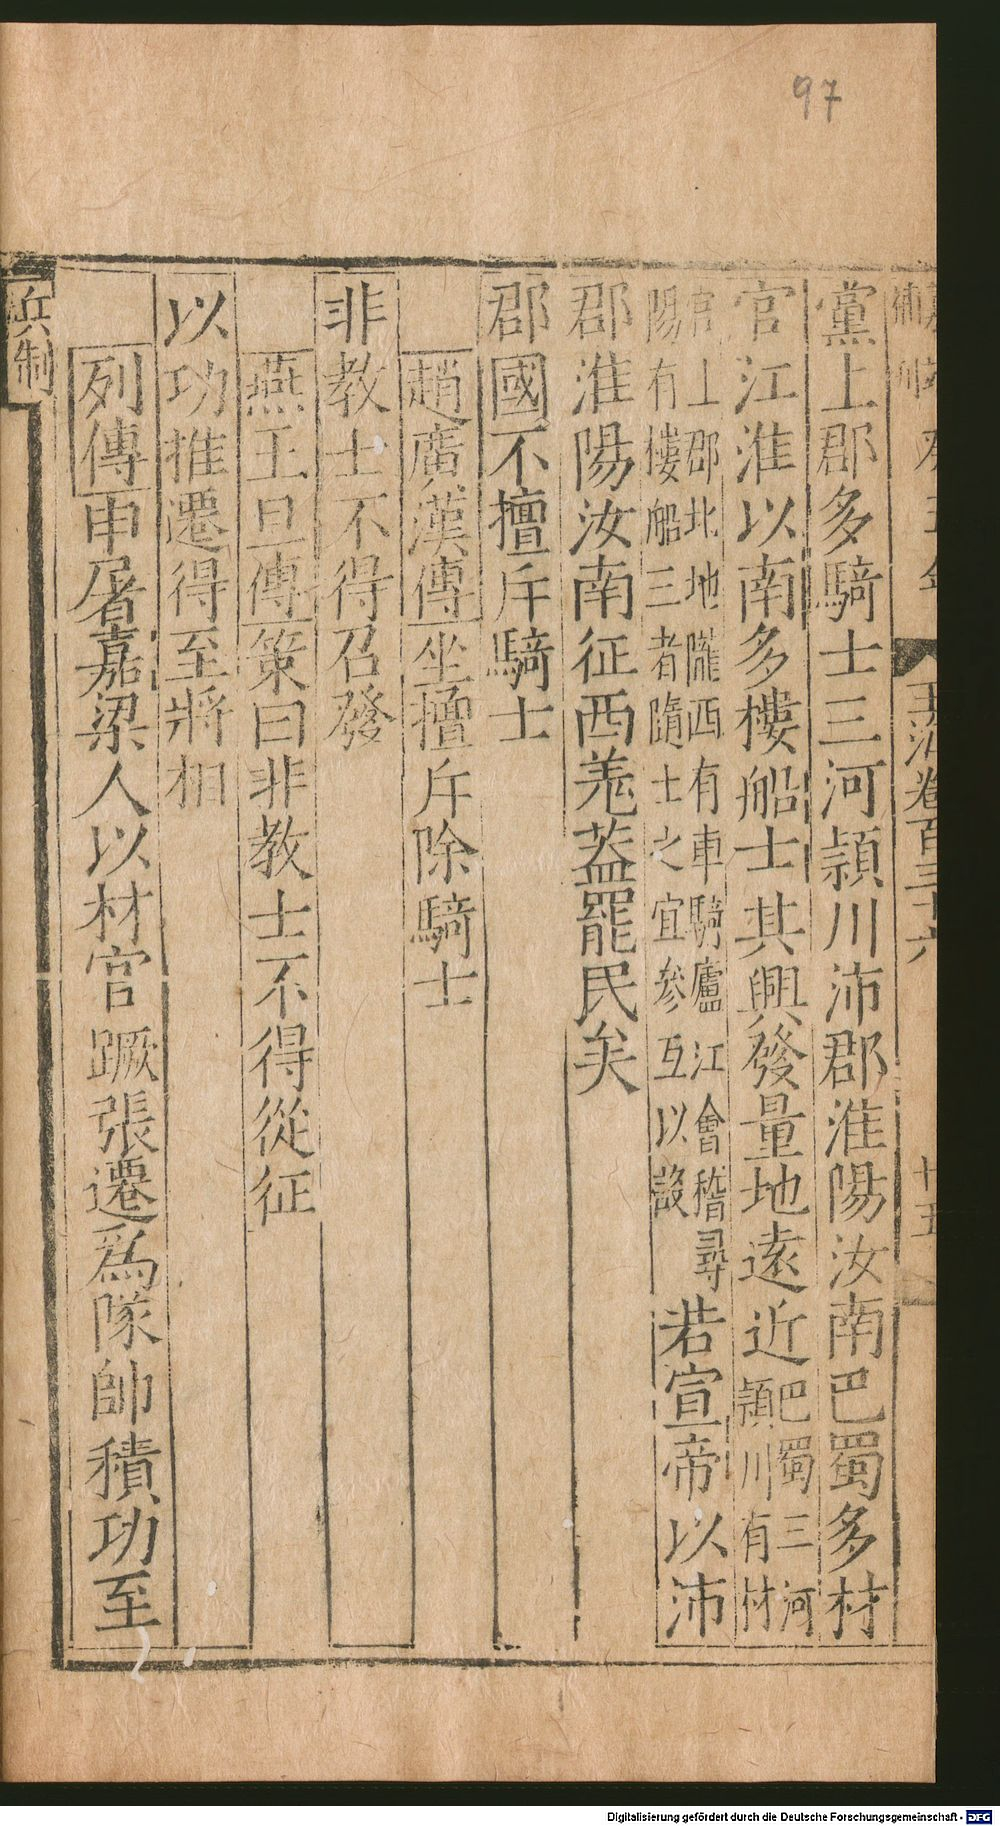 97
玉海卷百三十六
十五
黨上郡多騎士三河潁川沛郡淮陽汝南巴蜀多材
官江淮以南多樓船士其興發量地遠近巴蜀三河
潁川有材
官上郡北地隴西有車騎廬江會稽尋
陽有樓船三者隨土之宜參互以設若宣帝以沛
郡淮陽汝南征西羌蓋罷民矣
郡國不擅斥騎士
趙廣漢傳坐擅斥除騎士
非教士不得召發
燕王旦傳策曰非教士不得從征
以功推遷得至將相
列傳申屠嘉梁人以材官蹶張遷爲隊帥積功至
兵制
Digitalisierung gefördert durch die Deutsche Forschungsgemeinschaft - DFG